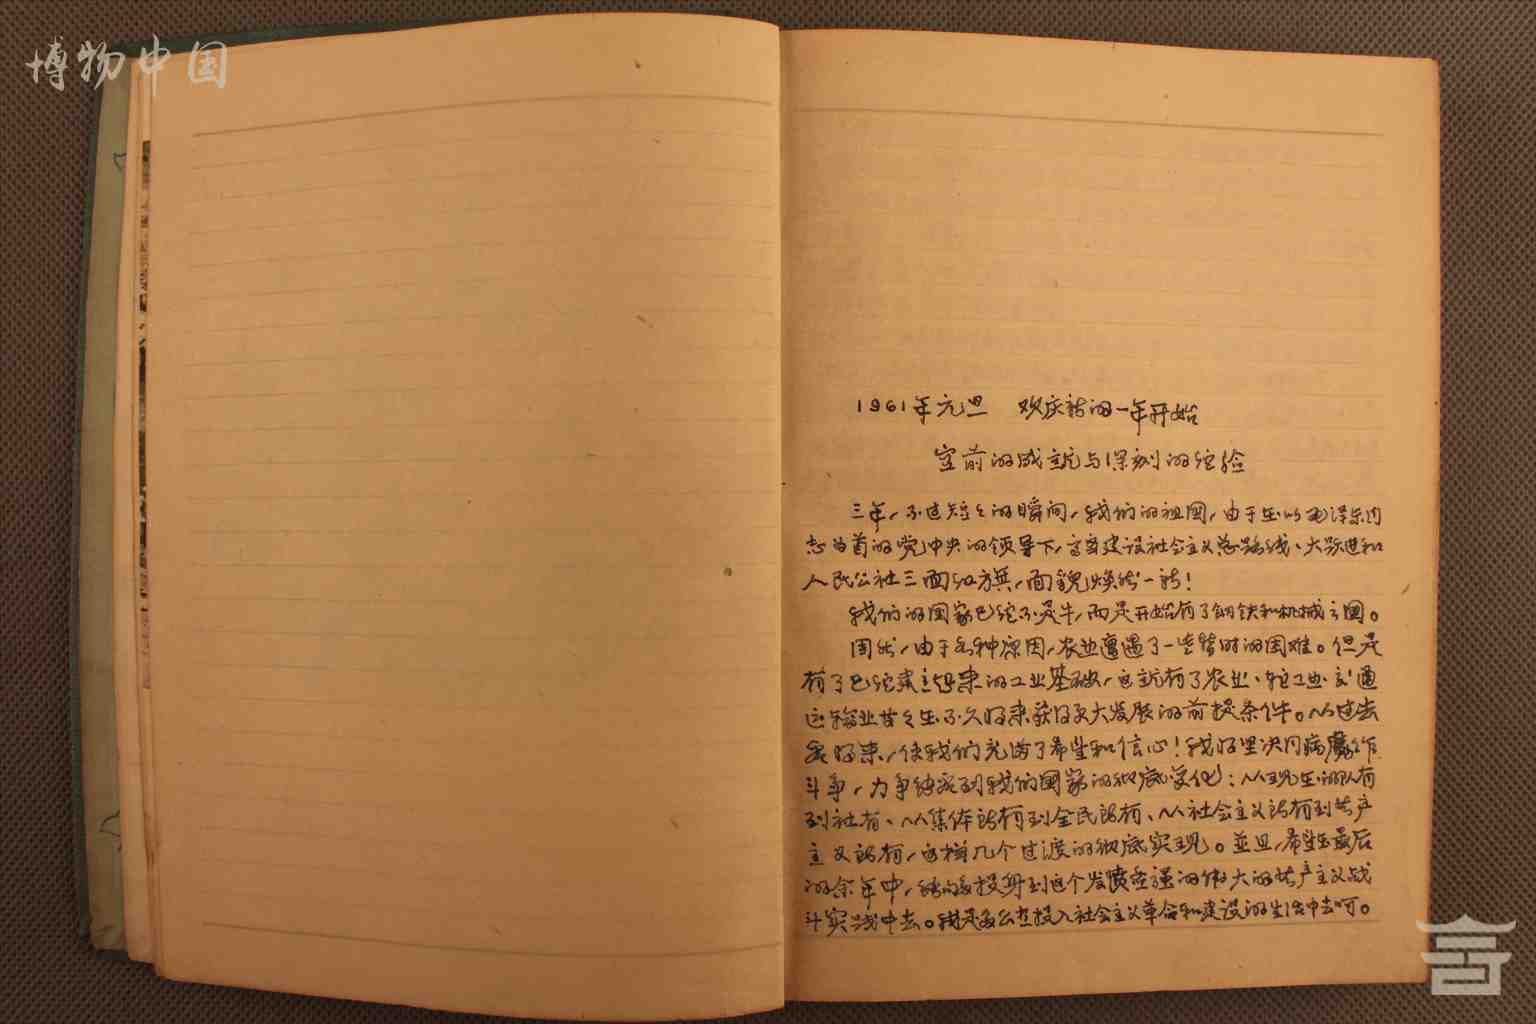 博物中国
1961年元旦 欢庆新的一年开始
空前的成就与深刻的经验
三年，不过短々的瞬间，我们的祖国，由于在以毛泽东同
志为首的党中央的领导下，高举建设社会主义总路线、大跃进和
人民公社三面红旗，面貌焕然一新！
我们的国家已经不是牛，而是开始有了钢铁和机械之国。
固然，由于各种原因，农业遭遇了一些暂时的困难。但是
有了已经建立起来的工业基础，也就有了农业、轻工业、交通
运输业甘々在不久将来获得更大发展的前提条件。从过去
看将来，使我们充满了希望和信心！我将坚决同病魔作
斗争，力争能看到我们国家的彻底变化：从现在的队有
到社有、从集体所有到全民所有、从社会主义所有到共产
主义所有，这样几个过渡的彻底实现。並且，希望在最后
的余年中，能够投身到这个发愤图强的伟大的共产主义战
斗实践中去。我是多么想投入社会主义革命和建设的生活中去呵。